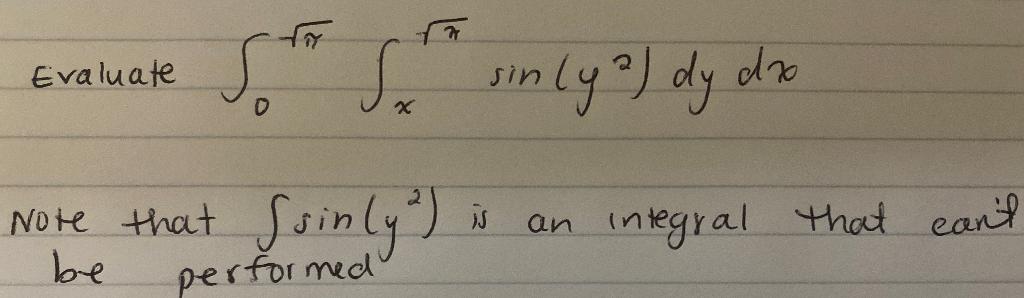 Evaluate ∫₀^√π ∫ₓ^√π sin(y²) dy dx
Note that ∫sin(y²) is an integral that can't
be performed